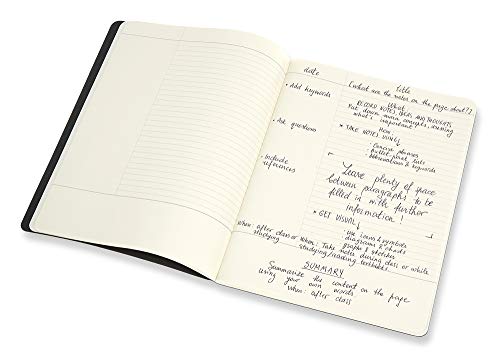 date
title
(what are the notes on the page about?)
• Add keywords
• Ask questions
• Include
references
What:
RECORD NOTES, IDEAS AND THOUGHTS
Put down main concepts, avoiding
what's important
How:
• TAKE NOTES USING ↓
- Concise phrases
- Bullet point lists
- Abbreviations & keywords
Leave plenty of space
between paragraphs to be
filled in with further
information!
• GET VISUAL ↓
- Use icons & symbols
- diagrams & charts
- graphs & sketches
When: after class or
studying
When: Take notes during class or while
studying/reading textbooks.
SUMMARY
Summarize the content on the page
using your own words
When: after class